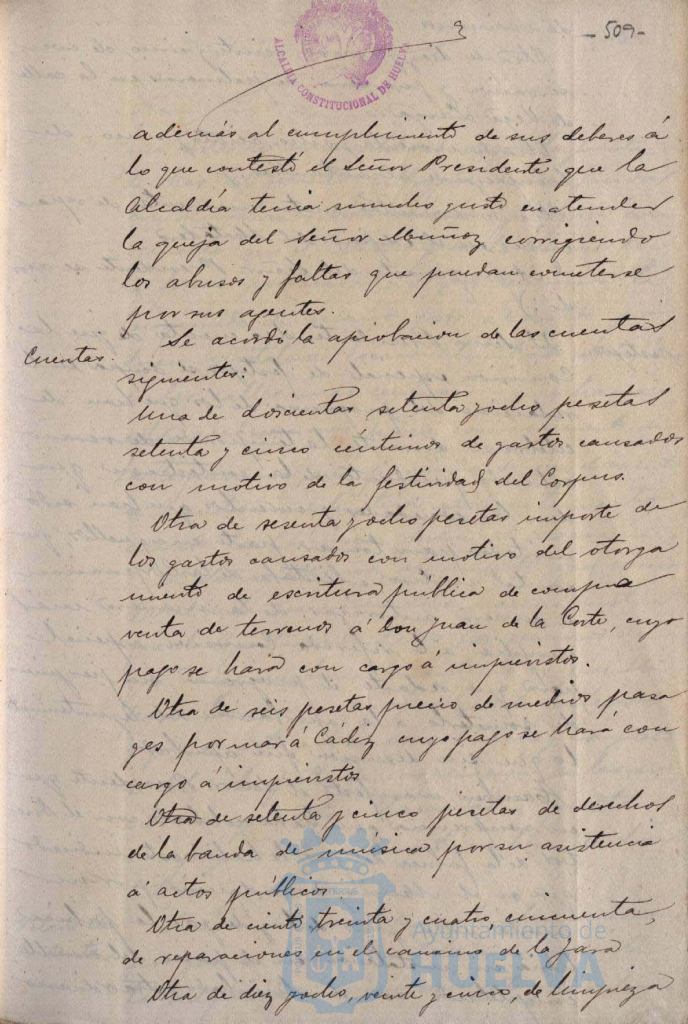 -509-
ALCALDÍA CONSTITUCIONAL DE HUELVA
además al cumplimiento de sus deberes á
lo que contestó el Señor Presidente que la
Alcaldía tenia mucho gusto en atender
la queja del Señor Muñoz corrigiendo
los abusos y faltas que puedan cometerse
por sus agentes.
Se acordó la aprobacion de las cuentas
Cuentas.
siguientes:
Una de doscientas setenta y ocho pesetas
setenta y cinco céntimos de gastos causados
con motivo de la festividad del Corpus.
Otra de sesenta y ocho pesetas importe de
los gastos causados con motivo del otorga
miento de escritura pública de compra
venta de terrenos á don Juan de la Corte, cuyo
pago se hará con cargo á imprevistos.
Otra de seis pesetas precio de medios pasa
ges por mar á Cádiz cuyo pago se hará con
cargo á imprevistos
Otra de setenta y cinco pesetas de derechos
de la banda de música por su asistencia
á actos públicos.
Otra de ciento treinta y cuatro, cincuenta,
de reparaciones en el camino de la Jara
Otra de diez y ocho, veinte y cinco, de limpieza
Ayuntamiento de
HUELVA